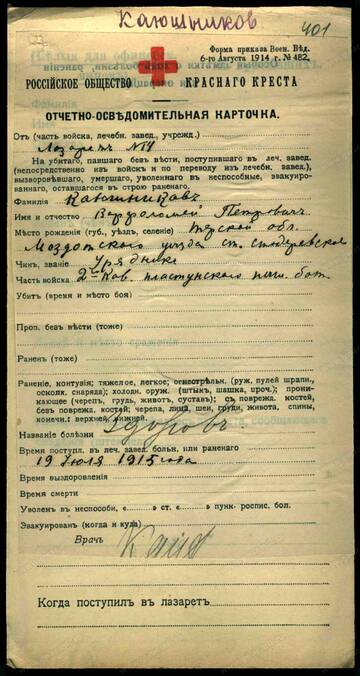 Каюшников
401
Форма приказа Воен. Вѣд.
6-го Августа 1914 г. № 482.
РОССІЙСКОЕ ОБЩЕСТВО КРАСНАГО КРЕСТА
ОТЧЕТНО-ОСВѢДОМИТЕЛЬНАЯ КАРТОЧКА.
Отъ (часть войска, лечебн. завед., учрежд.)
Лазарет №
На убитаго, павшаго безъ вѣсти, поступившаго въ леч. завед.
(непосредственно изъ войскъ и по переводу изъ лечебн. завед.),
выздоровѣвшаго, умершаго, уволеннаго въ неспособные, эвакуиро-
ваннаго, оставшагося въ строю раненаго.
Фамилія Каюшниковъ
Имя и отчество Варфоломей Петровичъ
Мѣсто рожденія (губ., уѣзд, селеніе) Терской обл.
Моздокского уѣзда ст.
Чинъ, званіе Урядникъ
Часть войска 2 Кав. пластунского бат.
Убитъ (время и мѣсто боя)
Проп. безъ вѣсти (тоже)
Раненъ (тоже)
Раненіе, контузія; тяжелое, легкое; огнестрѣльн. (руж. пулей шрапн.,
осколк. снаряда); холодн. оруж. (штыкъ, шашка, проч.); прони-
кающее (черепъ, грудь, животъ, суставъ); съ поврежд. костей,
безъ поврежд. костей; черепа, лица, шеи, груди, живота, спины,
конечн.: верхней, нижней.
Названіе болѣзни Здоровъ
Время поступл. въ леч. завед. больн. или раненаго
19 Іюля 1915 года
Время выздоровленія
Время смерти
Уволенъ въ неспособн. с ст. с пунк. роспис. бол.
Эвакуированъ (когда и куда)
Врачъ
Когда поступилъ въ лазаретъ